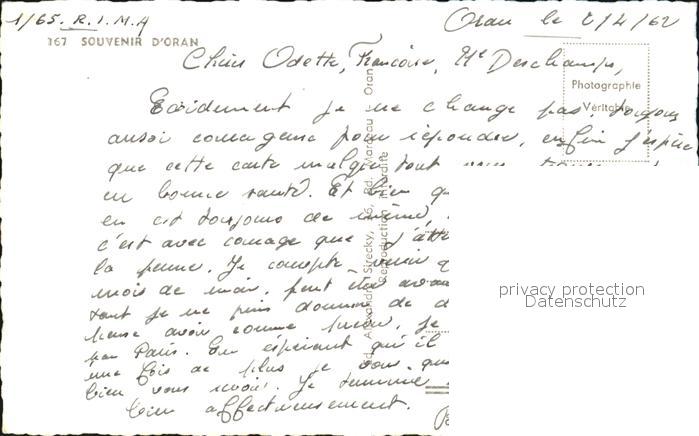 1/65. R.I.M.A
Oran le 2/4/62
167 SOUVENIR D'ORAN
Chères Odette, Françoise, Me Deschamps,
Photographie
Véritable
Evidement je ne change pas, toujours
aussi courageuse pour répondre, enfin j'espère
que cette carte malgré tout vous
en bonne santé. Et bien
en est toujours de même,
c'est avec courage que j'atte
la fin. Je compte venir
mois de mai, peut être avan
tant je ne puis donner de d
avoir comme je
par Paris. En espérant qu'il
une fois de plus je vous
bien vous revoir. Je termine
bien affectueusement.
Ed. Alexandre Sirecky, 16, Bd. Marceau - Oran
Reproduction Interdite
privacy protection
Datenschutz